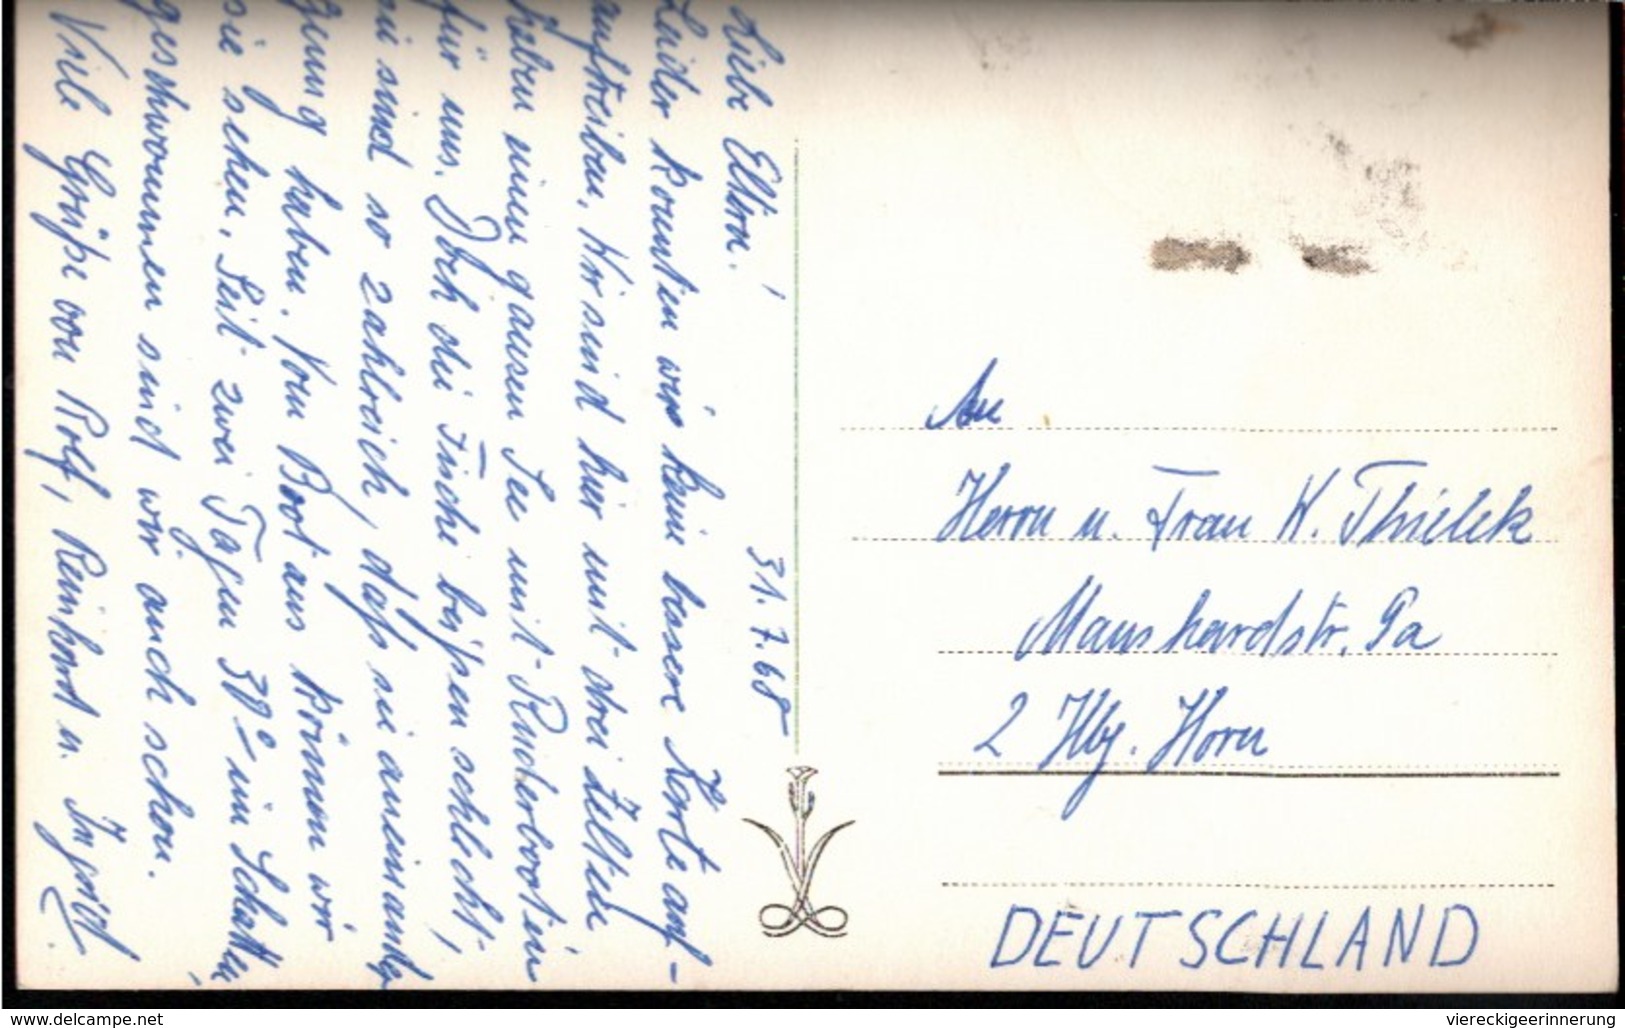 31.7.68
Liebe Eltern!
Leider konnten wir keine bessere Karte auf-
auftreiben. Wir sind hier mit drei Zelten
haben einen ganzen See mit Ruderbooten
für uns. Doch die Fische beißen schlecht,
sie sind so zahlreich, daß sie aneinander
genug haben. Vom Boot aus können wir
sie sehen. Seit zwei Tagen 30° im Schatten
geschwommen sind wir auch schon.
Viele Grüße von Rolf, Reinhard u. Ingrid.
An
Herrn u. Frau W. Thielek
Manshardstr. 9a
2 Hbg. Horn
DEUTSCHLAND
www.delcampe.net
viereckigeerinnerung